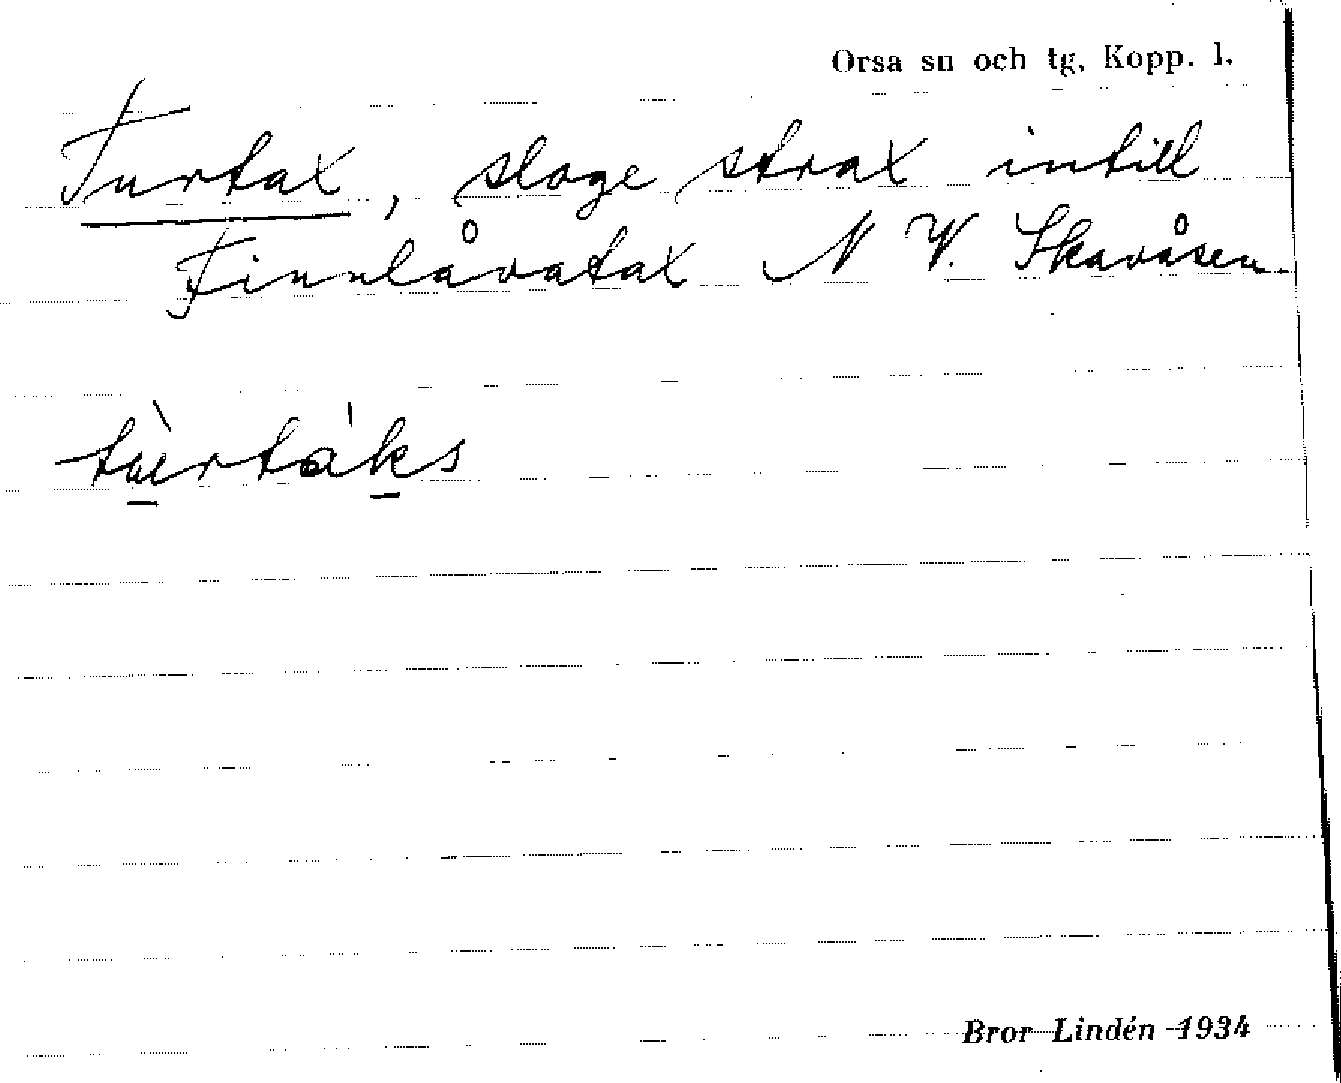 Orsa sn och tg, Kopp. l.
Turtax, sloge strax intill
Finnlåvatax N V. Skavåsen
tùrtáks
Bror Lindén 1934